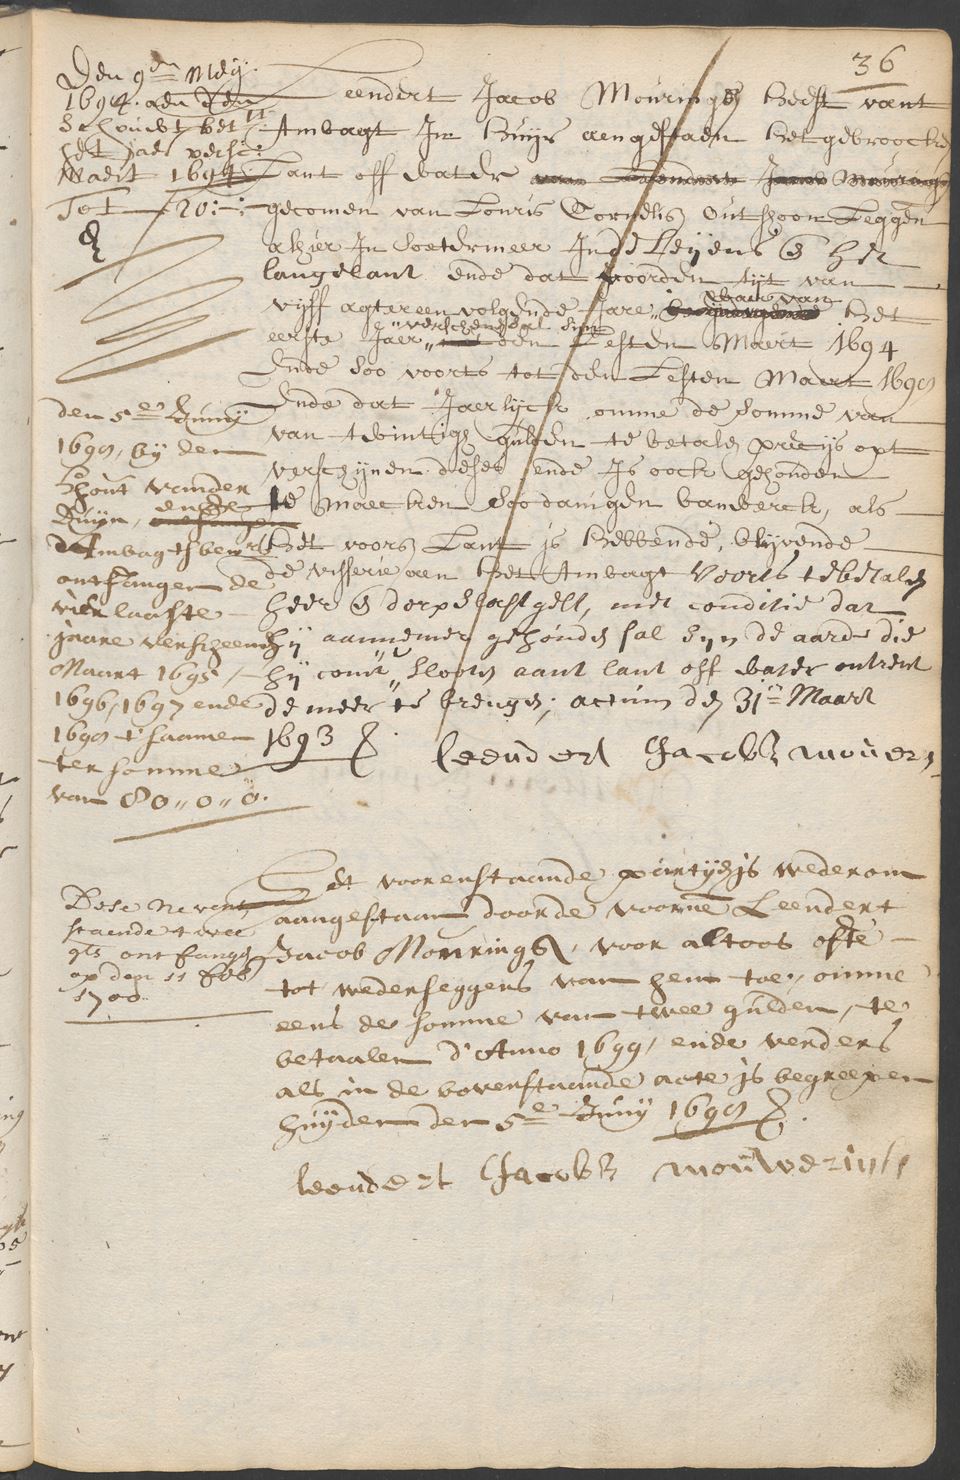 36
Den 9en Meij
1694. aen den
Schoudt bet.lt
het jaer versc:
Maert 1694
Tot 20:-:-
Leendert Jacob Mourings heeft vant
Ambagt In huijr aengestaen het gebroocke
Lant off water van Leendert Jacob Mourings
gecomen van Louris Cornelis outshoorn Leggen
alhier In Soetermeer Inde Leijens en het
langelant ende dat voorden tijt van
vijff agtereenvolgende Jare, waer van het
eerste Jaer verschenen sal sijn den Lesten Maert 1694
Ende soo voorts tot den Lesten Maert 1698
Ende dat Jaerlijck omme de somme van
van twintigh gulden te betalen precijs opt
verschijnen deses ende Is oock gehouden
te maecken soodanigen banwerck, als
het voors Lant is hebbende, blijvende
de visserie aen het Ambagt Voorts te betalen
heer en dorpe lastgelt, met conditie dat
hij aannemer gehouden sal sijn de aarde die
hij comt slooten aant lant off water ontrent
de meer te brengen, actum den 31en Maart
1693
leendert Jacobs mouweri
den 5en Junij
1698, bij den
Schout vanden
Huijn, ende
Ambagtsbewr
ontfangen de
vier laaste
jaare verscheenen
Maart 1695,
1696, 1697 ende
1698 t' saamen
ter somme
van 80,,0,,0.
Het voorenstaande partij is wederom
aangestaan doorde voorne Leendert
Jacob Mourings, voor altoos ofte
tot wederseggens van hem toe, omme
eens de somme van twee gulden, te
betaalen d'Anno 1699, ende verders
als in de bovenstaande acte is begreepen
huijden den 5e Junij 1698
leendert Jacobs mouwerinck
Dese nevens
staende twee
gls ontfange
op den 11 feb
1700